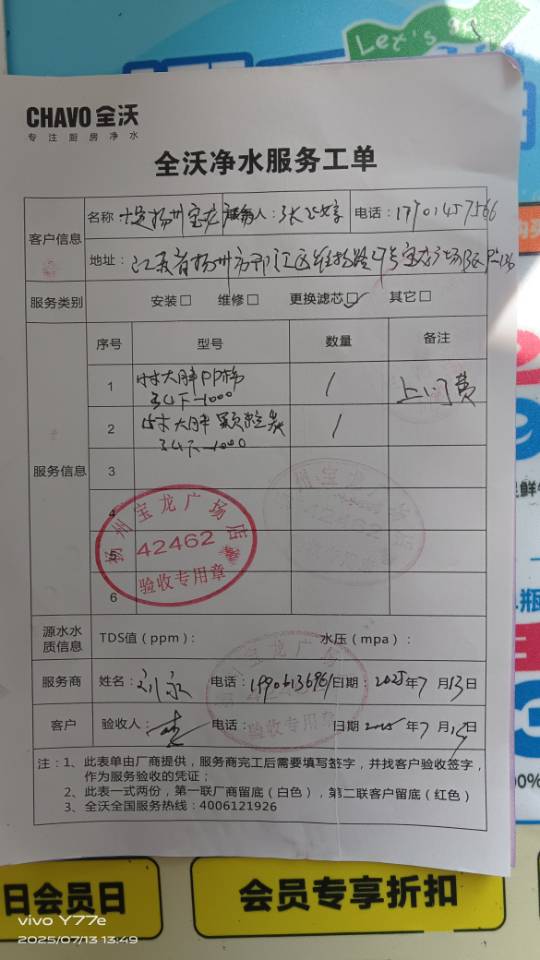 Let's
CHAVO 全沃
专注厨房净水
全沃净水服务工单
客户信息
名称 扬州宝龙 联系人: 张 电话: 17701457566
地址: 江苏省扬州市邗江区维扬路 号宝龙广场
服务类别 安装□ 维修□ 更换滤芯☑ 其它□
服务信息
序号 型号 数量 备注
1 大胖PP棉 1 上门费
3401-1000
2 大胖颗粒炭 1
3401-1000
3
4
5
6
扬州宝龙广场店
42462
验收专用章
扬州宝龙广场店
42462
验收专用章
源水水质信息 TDS值(ppm): 水压(mpa):
服务商 姓名: 刘永 电话: 日期: 2025年7月13日
客户 验收人: 电话: 日期 2025年7月13日
宝龙广场
验收专用章
注: 1、此表单由厂商提供,服务商完工后需要填写签字,并找客户验收签字,
作为服务验收的凭证;
2、此表一式两份,第一联厂商留底(白色),第二联客户留底(红色)
3、全沃全国服务热线: 4006121926
日会员日
会员专享折扣
vivo Y77e
2025/07/13 13:49